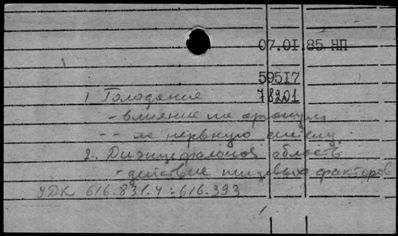 07.01.85 НП
59517
78201
1. Голодание
- влияние на организм
- - на нервную систему
2. Диэнцефальная область
- действие пищевых факторов
УДК 616.831.4:616.393